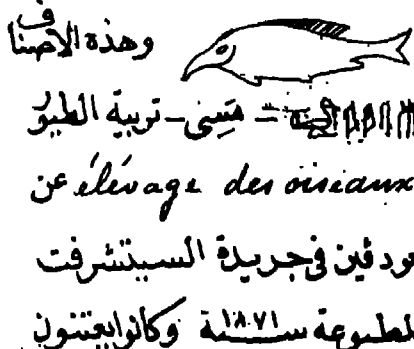 وهذه الأصناف
= مَسِنى - تربية الطيور
élévage des oiseaux عن
بودقين في جريدة السيتشرفت
لمطبوعة سـنة ١٨٧١ وكانوا يعتنون